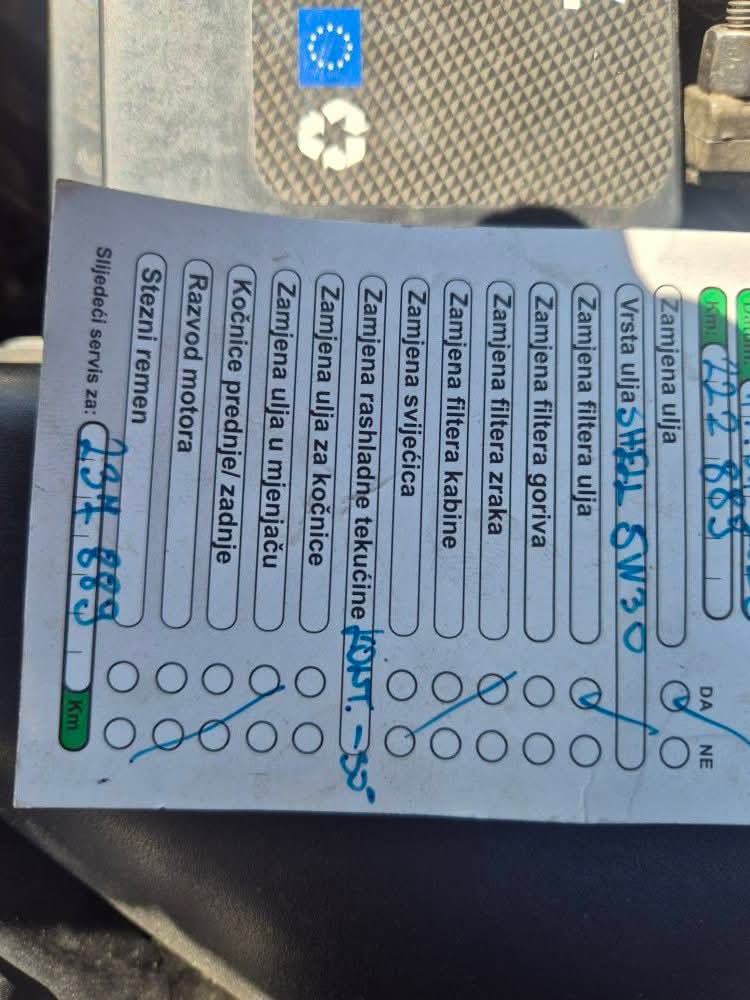 Km: 222 889
DA NE
Zamjena ulja
Vrsta ulja SHELL 5W30
Zamjena filtera ulja
Zamjena filtera goriva
Zamjena filtera zraka
Zamjena filtera kabine
Zamjena svijećica
Zamjena rashladne tekućine KONT. -30°
Zamjena ulja za kočnice
Zamjena ulja u mjenjaču
Kočnice prednje/ zadnje
Razvod motora
Stezni remen
Slijedeći servis za: 237 889 Km